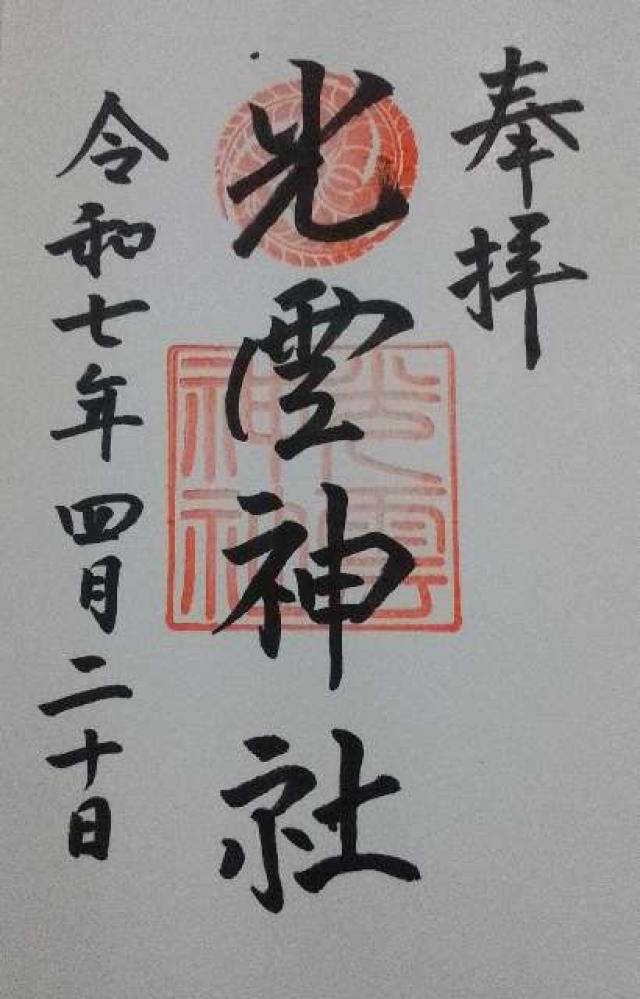 奉拝
光雲神社
令和七年四月二十日
光雲
神社